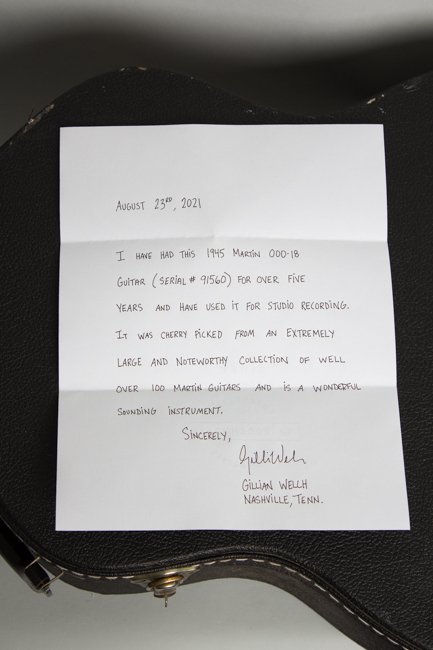 AUGUST 23RD, 2021
I HAVE HAD THIS 1945 MARTIN 000-18
GUITAR (SERIAL # 91560) FOR OVER FIVE
YEARS AND HAVE USED IT FOR STUDIO RECORDING.
IT WAS CHERRY PICKED FROM AN EXTREMELY
LARGE AND NOTEWORTHY COLLECTION OF WELL
OVER 100 MARTIN GUITARS AND IS A WONDERFUL
SOUNDING INSTRUMENT.
SINCERELY,
Gilli Welch
GILLIAN WELCH
NASHVILLE, TENN.